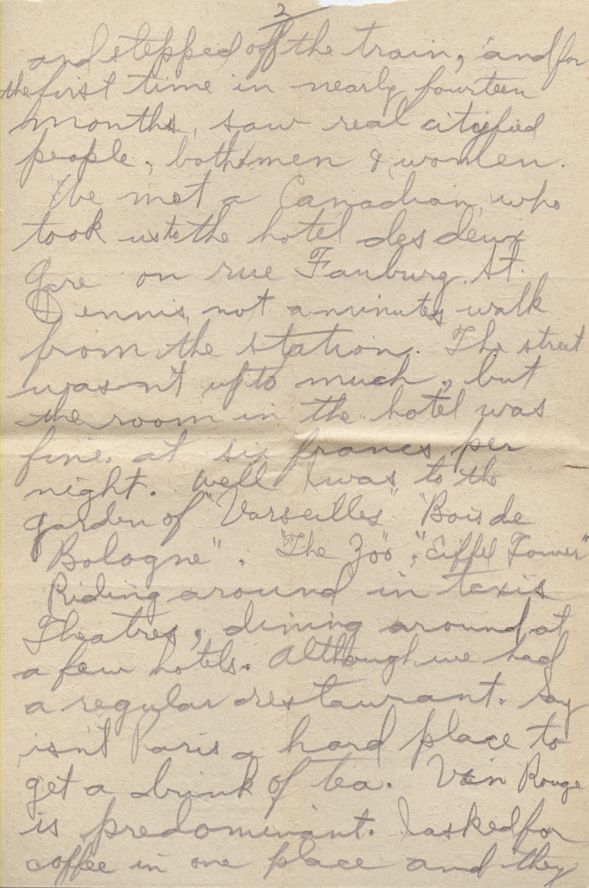 2
and stepped off the train, and for
the first time in nearly fourteen
months, saw real cityfied
people, both men & women.
We met a Canadian, who
took us to the hotel des deux
Gare on rue Fauburg St.
Dennis, not a minutes walk
from the station. The street
wasn't up to much, but
the room in the hotel was
fine, at six francs per
night. Well I was to the
garden of "Varseilles" "Bois de
Bologne". "The Zoo", "Eiffel Tower"
Riding around in taxis
Theatres, dining around at
a few hotels. Although we had
a regular restaurant. Say
isn't Paris a hard place to
get a drink of tea. Vin Rouge
is predominant. I asked for
coffee in one place and they